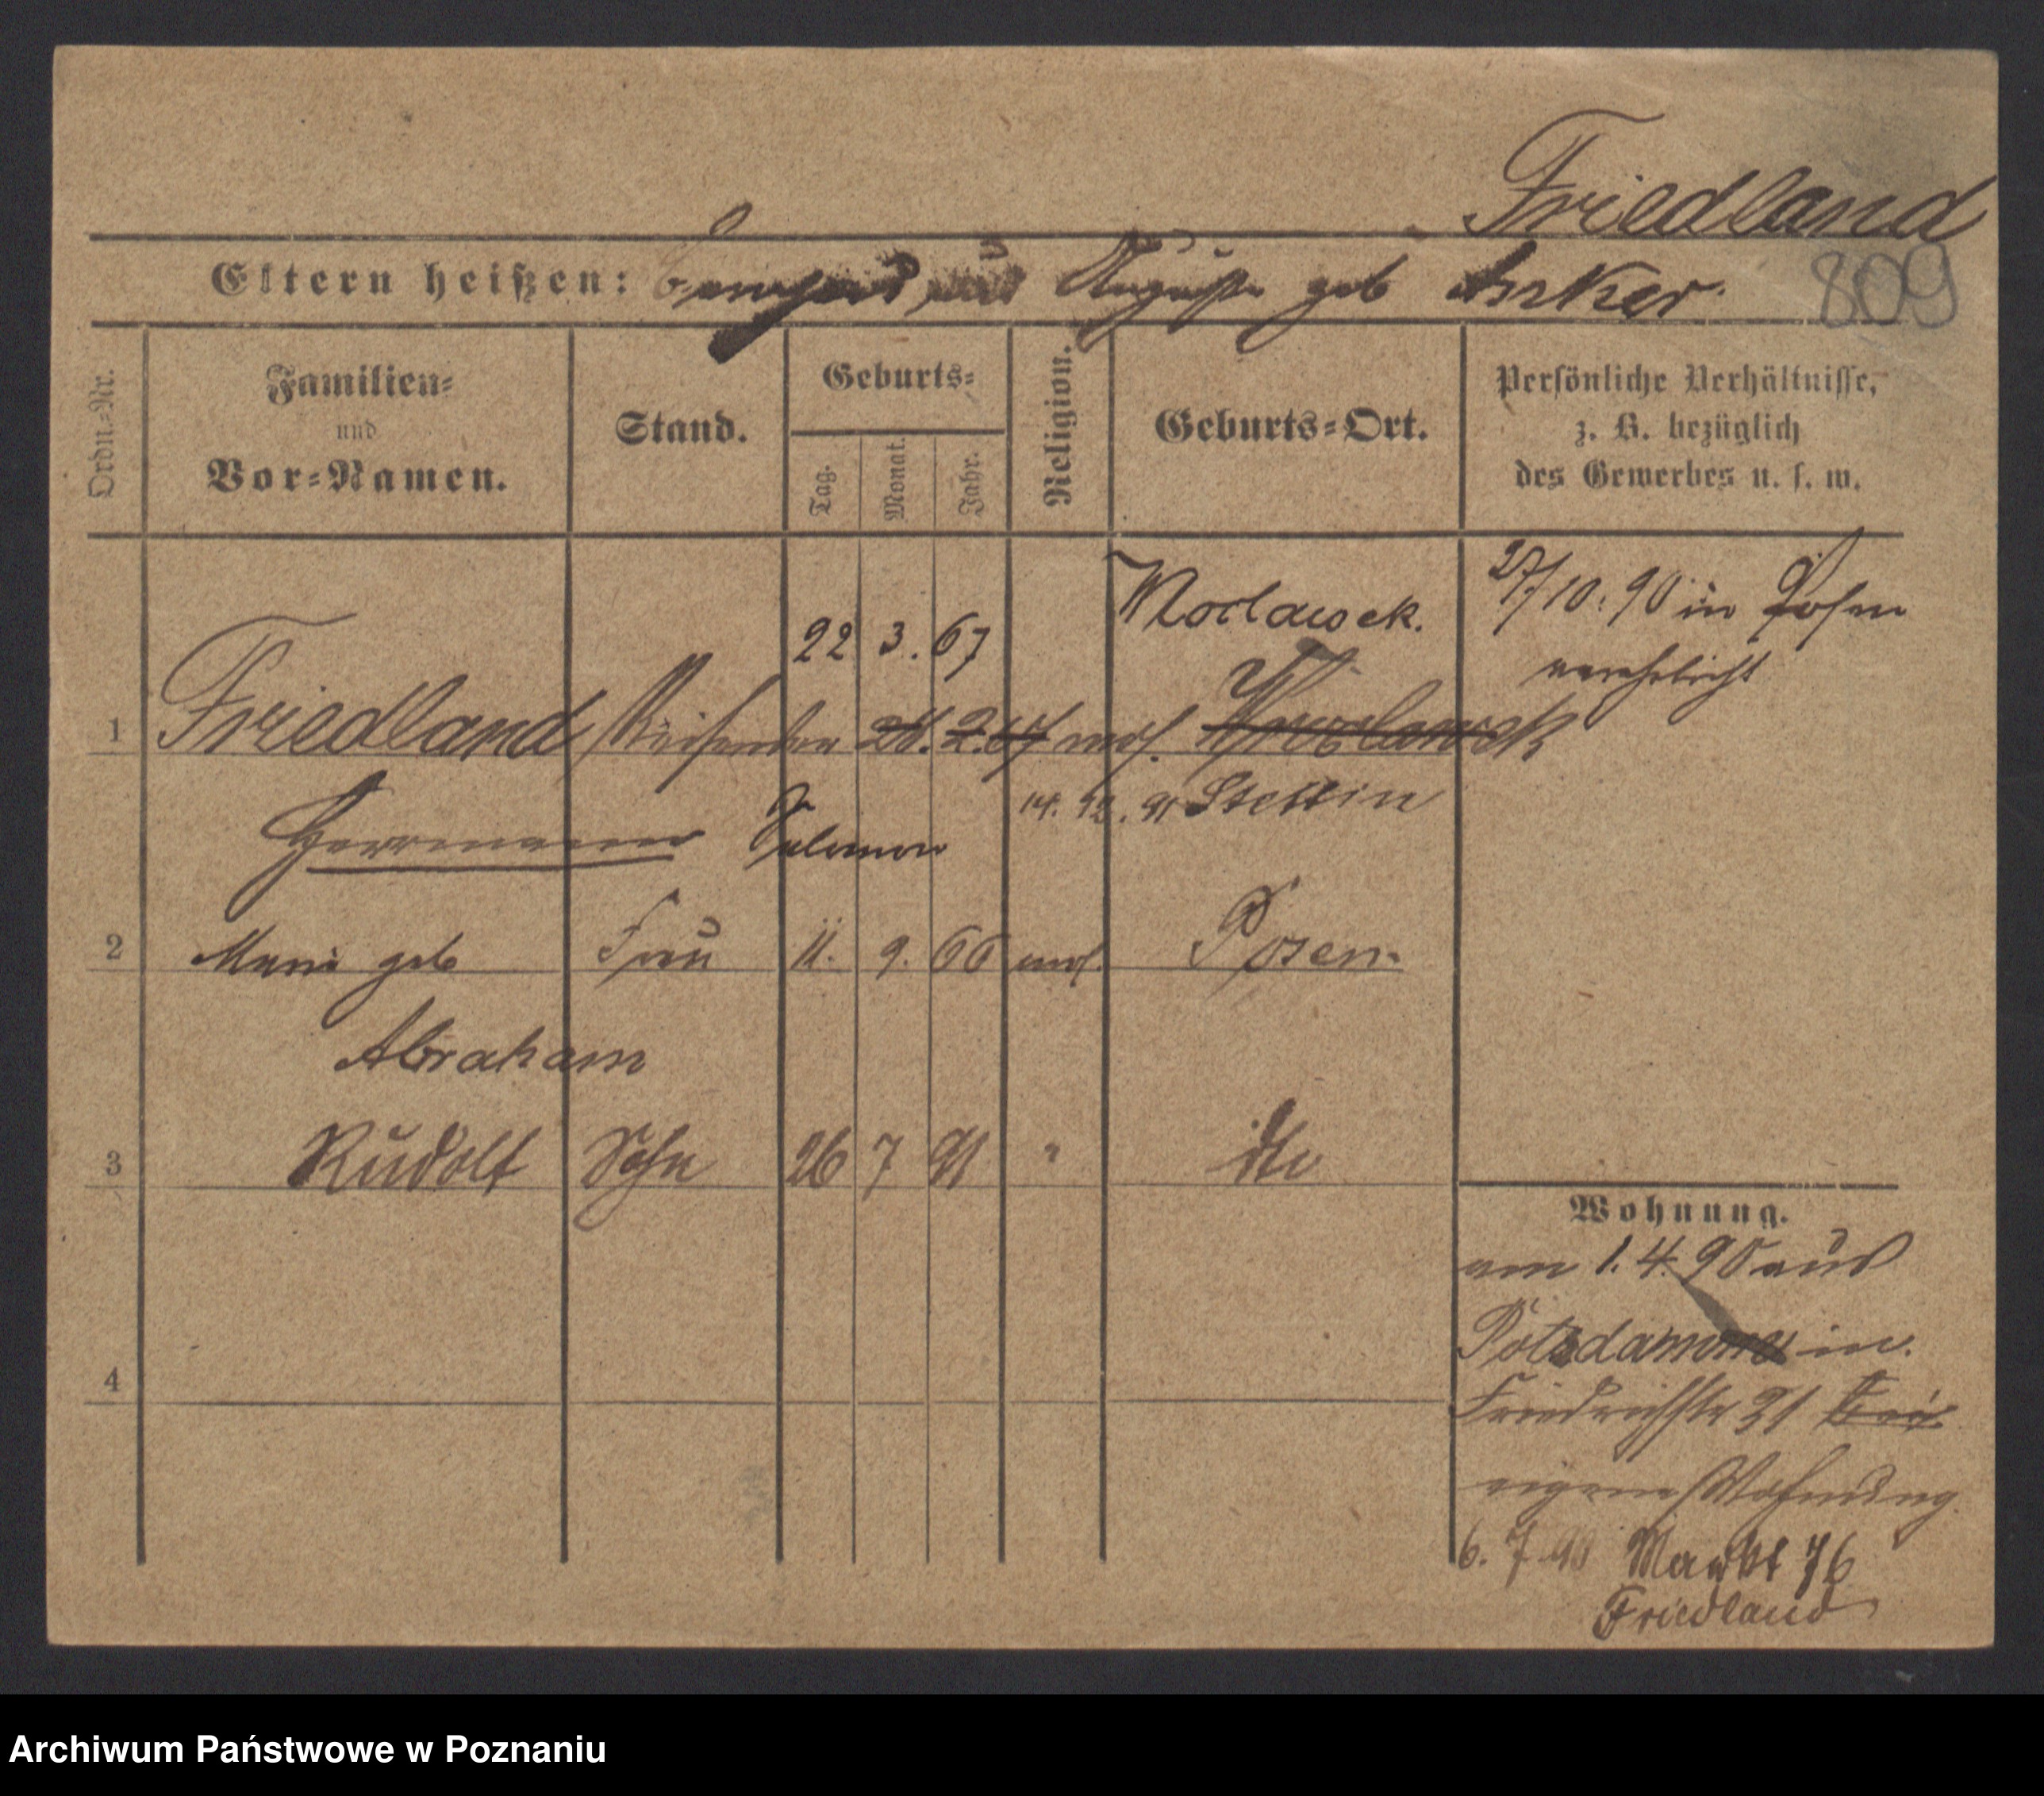 Friedland
Eltern heißen: und Auguste geb Anker
809
Ordn.-Nr.
Familien-
und
Vor-Namen.
Stand.
Geburts-
Tag.
Monat.
Jahr.
Religion.
Geburts-Ort.
Persönliche Verhältnisse,
z. B. bezüglich
des Gewerbes u. s. w.
22 3. 67 Woclawek. 27/10. 90 in Posen
verehelicht
1 Friedland Reisender 2. 67 mos.
Herrmann Salomon 14. 12. 91 Stettin
2 Marie geb Frau 11. 9. 66 mos. Posen.
Abraham
3 Rudolf Sohn 26 7 91 " dto
Wohnung.
am 1. 4. 90 aus
Potsdam in
Friedrichstr 31
eigene Wohnung
6. 7. 90 Markt 76
Friedland
4
Archiwum Państwowe w Poznaniu